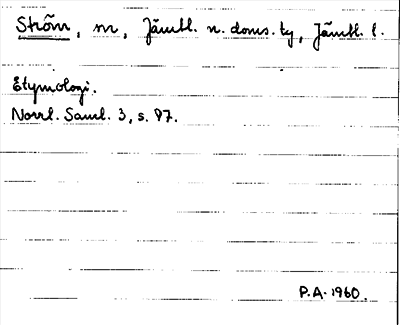 Ström, sn, Jämtl. n. doms. tg, Jämtl. l.
Etymologi.
Norrl. Saml. 3, s. 87.
P.A. 1960.